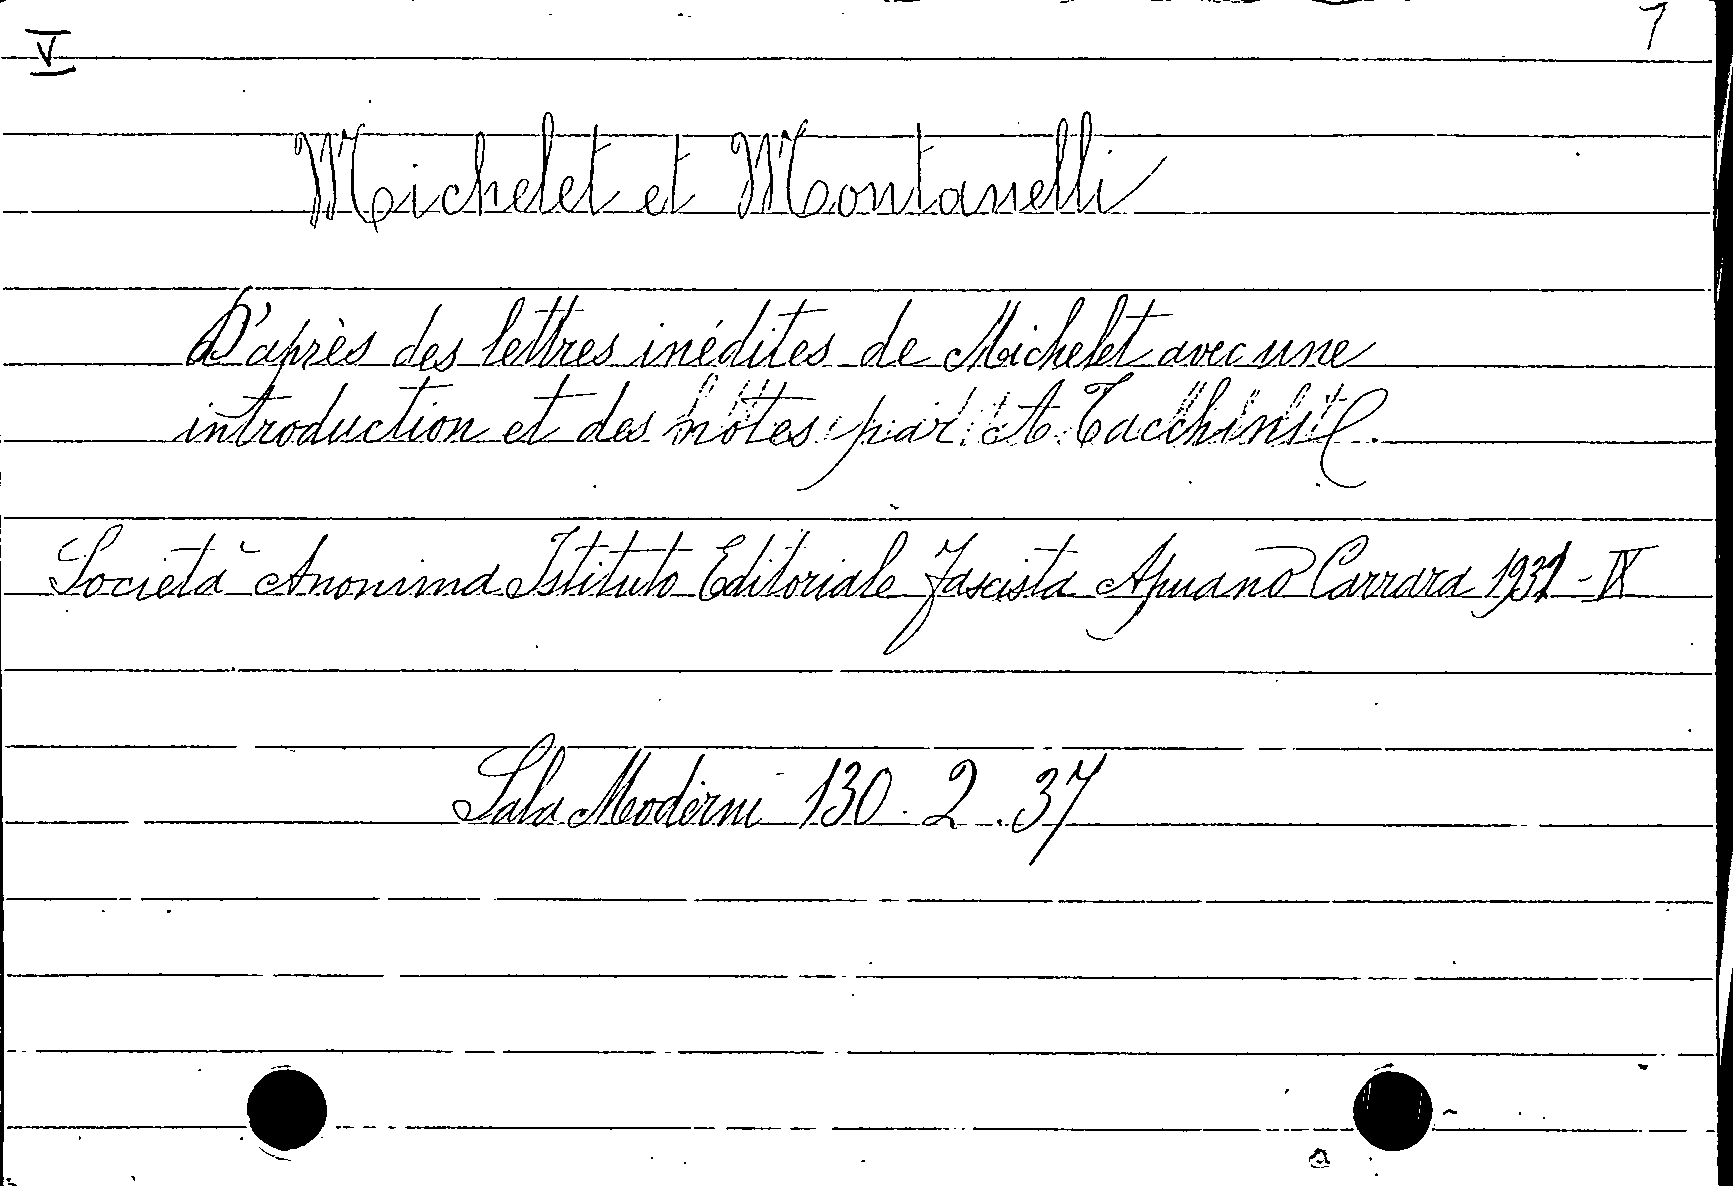 V
1
Michelet et Montanelli
D'après des lettres inédites de Michelet avec une
introduction et des notes par A. Tacchini.
Società Anonima Istituto Editoriale Fascista Apuano Carrara 1931 - IX
Sala Moderni 130. 2. 37